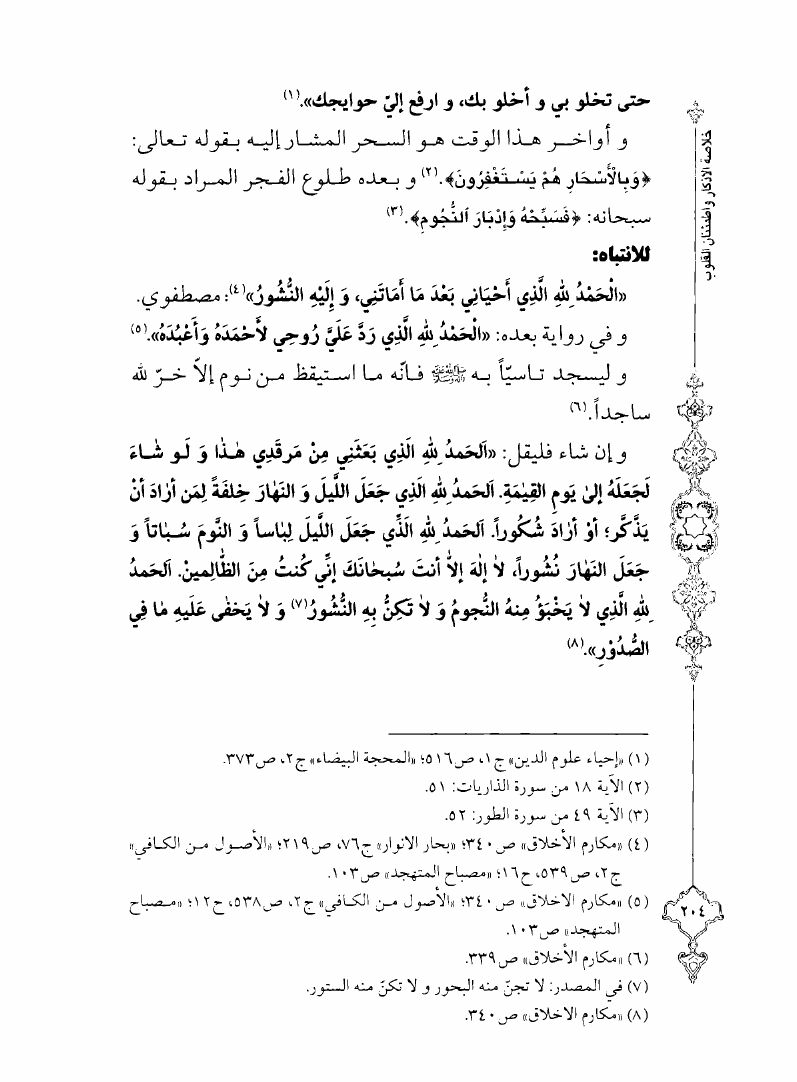 خلاصة الاذكار واطمئنان القلوب
حتى تخلو بي و أخلو بك، و ارفع إليّ حوايجك».(١)
و أواخر هذا الوقت هو السحر المشار إليه بقوله تعالى:
﴿وَبِالْأَسْحَارِ هُمْ يَسْتَغْفِرُونَ﴾.(٢) و بعده طلوع الفجر المراد بقوله
سبحانه: ﴿فَسَبِّحْهُ وَإِدْبَارَ ٱلنُّجُومِ﴾.(٣)
للانتباه:
«الْحَمْدُ لِلهِ الَّذِي أَحْيَانِي بَعْدَ مَا أَمَاتَنِي، وَ إِلَيْهِ النُّشُورُ»(٤): مصطفوي.
و في رواية بعده: «الْحَمْدُ لِلهِ الَّذِي رَدَّ عَلَيَّ رُوحِي لأَحْمَدَهُ وَأَعْبُدَهُ».(٥)
و ليسجد تاسيّاً به ﷺ فانّه ما استيقظ من نوم إلاّ خرّ لله
ساجداً.(٦)
و إن شاء فليقل: «اَلحَمدُ لِلهِ الَّذِي بَعَثَنِي مِنْ مَرقَدِي هٰذٰا وَ لَو شٰاءَ
لَجَعَلَهُ إلىٰ يَومِ القِيٰمَةِ. اَلحَمدُ لِلهِ الَّذِي جَعَلَ اللَّيلَ وَ النَّهٰارَ خِلفَةً لِمَن أرٰادَ أنْ
يَذَّكَّر؛ أوْ أرٰادَ شُكُوراً. اَلحَمدُ لِلهِ الَّذِّي جَعَلَ اللَّيلَ لِبٰاساً وَ النَّومَ سُبٰاتاً وَ
جَعَلَ النَهٰارَ نُشُوراً، لاٰ إلٰهَ إلاّٰ أنتَ سُبحٰانَكَ إنِّي كُنتُ مِنَ الظّٰالِمينَ. اَلحَمدُ
لِلهِ الَّذِي لاٰ يَخْبَؤُ مِنهُ النُّجومُ وَ لاٰ تَكِنُّ بِهِ النُّشُورُ(٧) وَ لاٰ يَخفٰى عَلَيهِ مٰا فِي
الصُّدُوْرِ».(٨)
(١) «إحياء علوم الدين» ج١، ص٥١٦؛ «المحجة البيضاء» ج٢، ص٣٧٣.
(٢) الآية ١٨ من سورة الذاريات: ٥١.
(٣) الآية ٤٩ من سورة الطور: ٥٢.
(٤) «مكارم الأخلاق» ص٣٤٠؛ «بحار الانوار» ج٧٦، ص٢١٩؛ «الأصول من الكافي»
ج٢، ص٥٣٩، ح١٦؛ «مصباح المتهجد» ص١٠٣.
(٥) «مكارم الاخلاق» ص٣٤٠؛ «الأصول من الكافي» ج٢، ص٥٣٨، ح١٢؛ «مصباح
المتهجد» ص١٠٣.
(٦) «مكارم الأخلاق» ص٣٣٩.
(٧) في المصدر: لا تجنّ منه البحور و لا تكنّ منه الستور.
(٨) «مكارم الاخلاق» ص٣٤٠.
٢٠٤